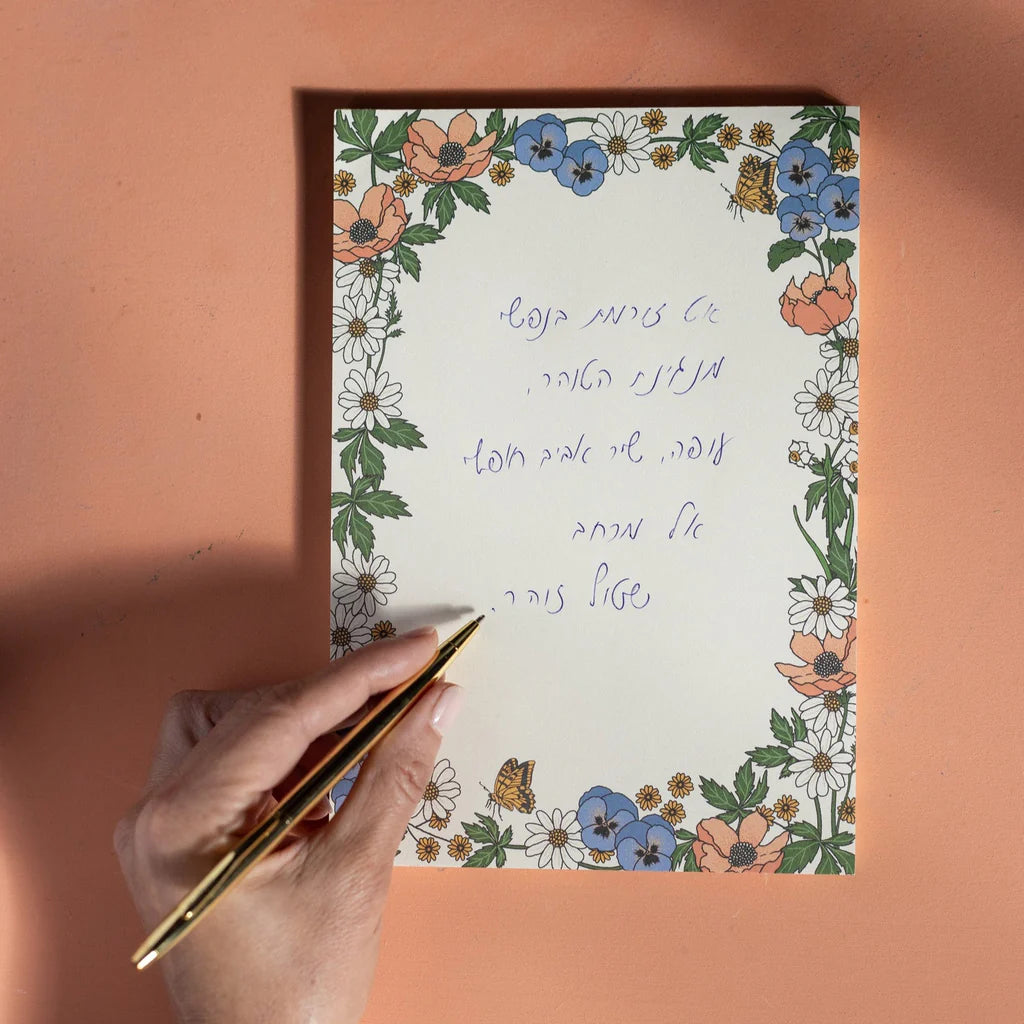 אט זורמת בנפשי
מנגינת הטוהר,
עופה, שיר אביב חופשי
אל מרחב
שטול זוהר.